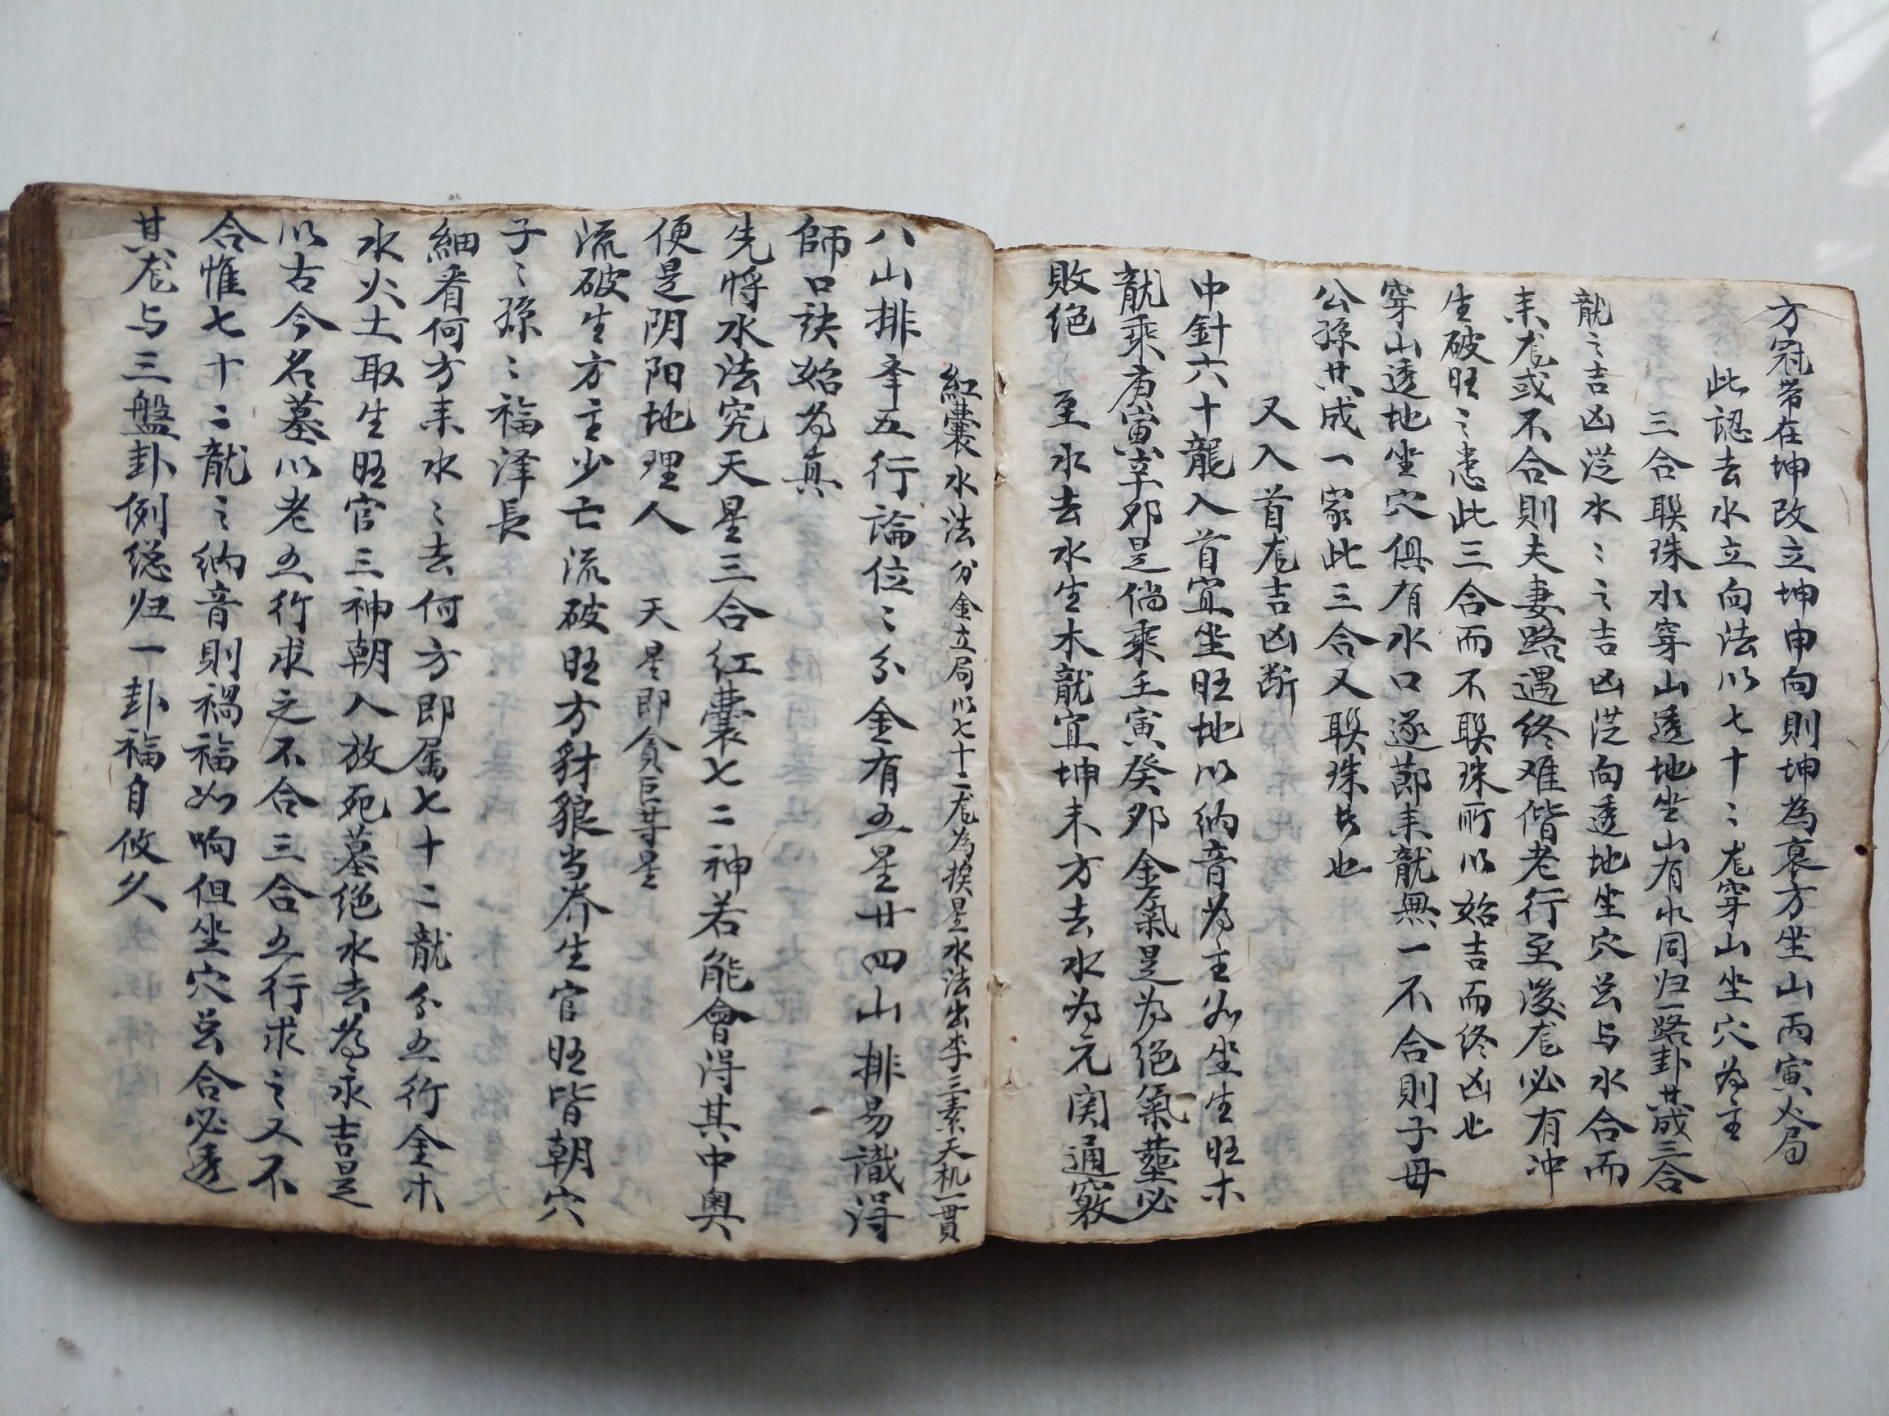 方冠帶在坤改立坤申向則坤為衰方坐山丙寅火局
此認去水立向法以七十二龙穿山坐穴为主
三合聯珠水穿山透地坐山有水同归一路卦共成三合
龍之吉凶從水水之吉凶從向透地坐穴总与水合而
来龙或不合則夫妻路遇终难偕老行至後龙必有冲
生破旺之患此三合而不聯珠所以始吉而终凶也
穿山透地坐穴俱有水口遂節来龍無一不合則子母
公孫共成一家此三合又聯珠者也
又入首龙吉凶断
中針六十龍入首宜坐旺地以納音为主如坐生旺木
龍乘庚寅辛卯是倘乘壬寅癸卯金氣是为绝氣塟必
敗绝 至水去水生木龍宜坤未方去水为元関通竅
紅囊水法分金立局以七十二龙為撥星水法出李三素天机一貫
八山排来五行論位位分金有五星廿四山排易識得
師口訣始为真
先將水法究天星三合红囊七二神若能會得其中奥
便是阴阳地理人 天星即貪巨等星
流破生方主少亡流破旺方豺狼当养生官旺皆朝穴
子子孫孫福泽長
細看何方来水水去何方即属七十二龍分五行金木
水火土取生旺官三神朝入放死墓绝水去为永吉是
以古今名墓以老五行求之不合三合五行求之又不
合惟七十二龍之納音則禍福如响但坐穴总合必透
其龙与三盤卦例縂归一卦福自攸久